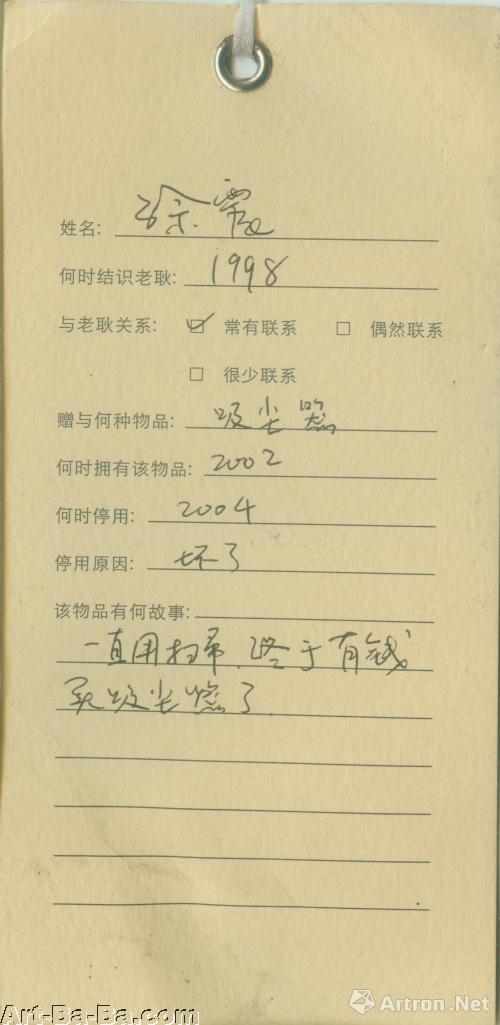 姓名: 徐震
何时结识老耿: 1998
与老耿关系: ☑ 常有联系 □ 偶然联系
□ 很少联系
赠与何种物品: 吸尘器
何时拥有该物品: 2002
何时停用: 2004
停用原因: 坏了
该物品有何故事:
一直用扫帚、终于有钱
买吸尘器了
Art-Ba-Ba.com
Artron.Net